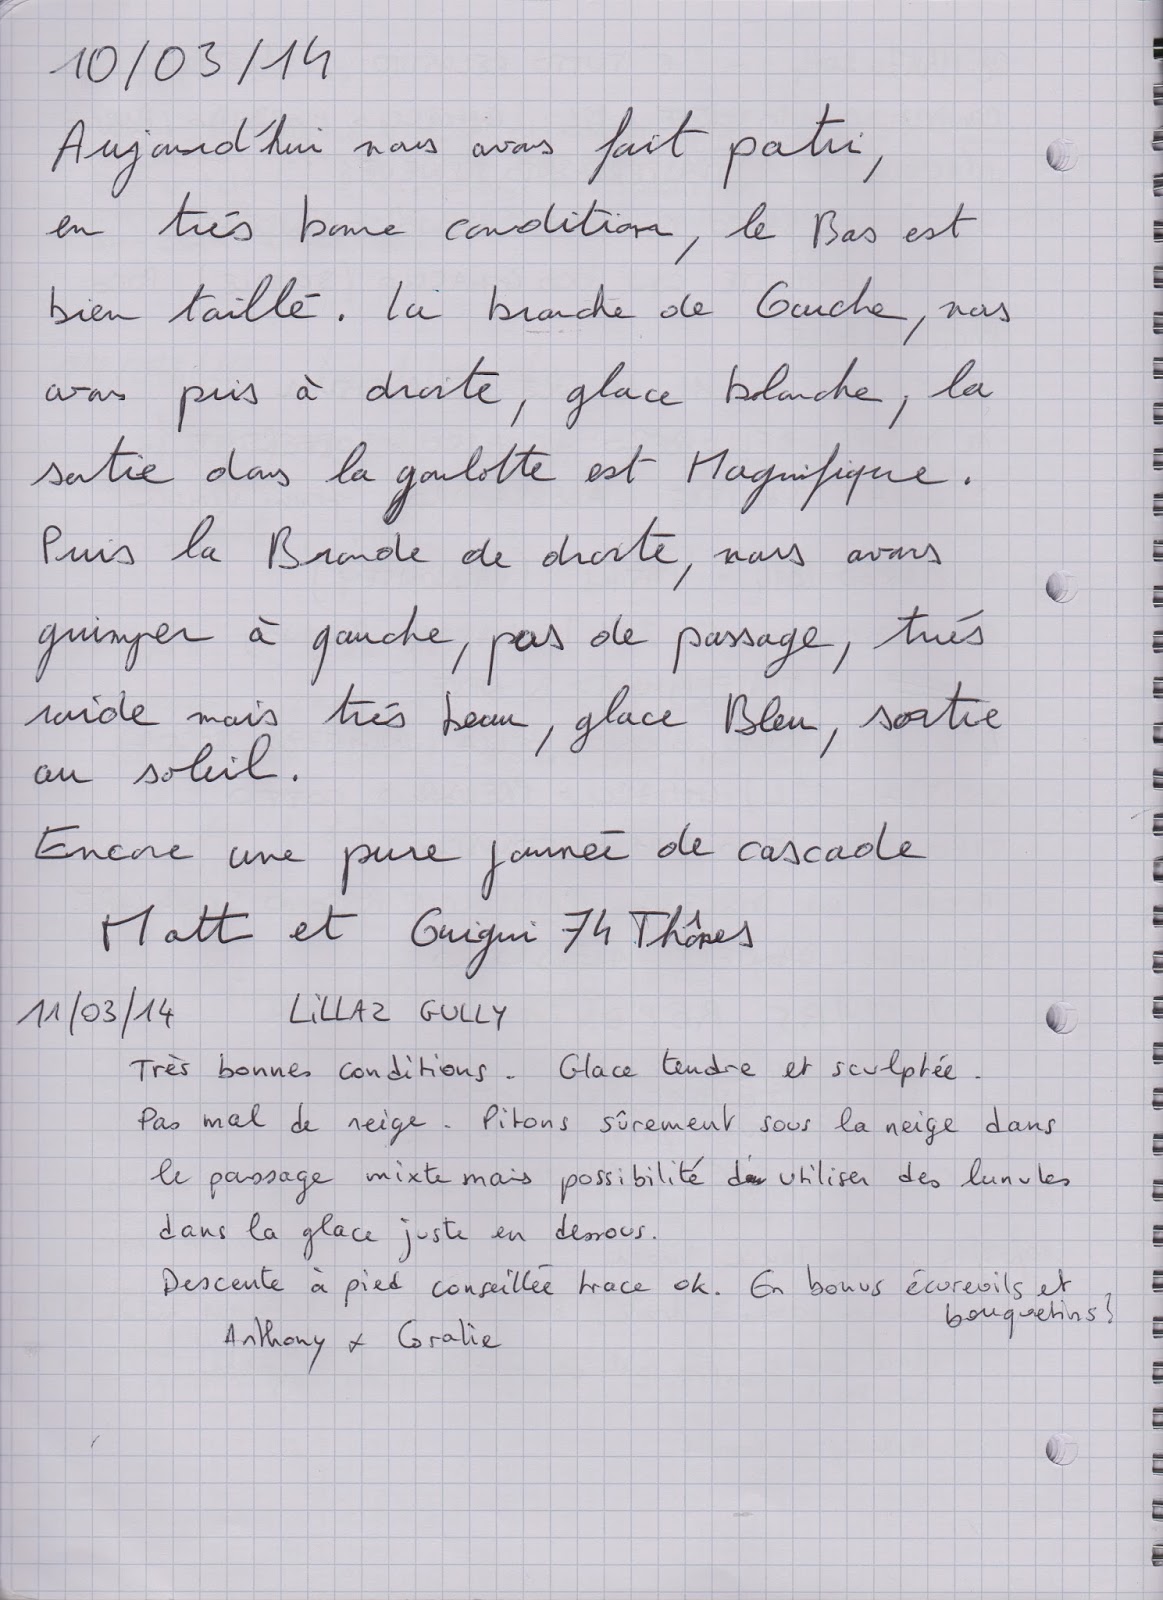 10/03/14
Aujourd'hui nous avons fait patri,
en trés bonne condition, le Bas est
bien taillé. La branche de Gauche, nous
avons pris à droite, glace blanche, la
sortie dans la goulotte est Magnifique.
Puis la Branche de droite, nous avons
guimper à gauche, pas de passage, trés
raide mais trés beau, glace Bleu, sortie
au soleil.
Encore une pure journée de cascade
Matt et Guigui 74 Thônes
11/03/14 LiLLAZ GULLY
Très bonnes conditions. Glace tendre et sculptée.
Pas mal de neige. Pitons sûrement sous la neige dans
le passage mixte mais possibilité d'utiliser des lunules
dans la glace juste en dessous.
Descente à pied conseillée trace ok. En bonus écureuils et
bouquetins!
Anthony & Coralie